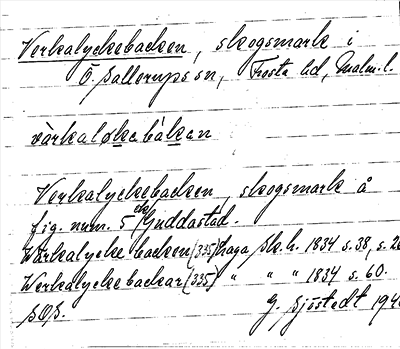 Verkalyckebacken, skogsmark i
Ö. Sallerups sn, Frosta hd, Malm. l.
vàrkaløkabákan
Verkalyckebacken, skogsmark å
fig. num. 5
Werkalycke backen (335) Laga sk. h. 1834 s. 38, s.
Werkalyckebackar (335) " " " 1834 s. 60.
G. Sjöstedt